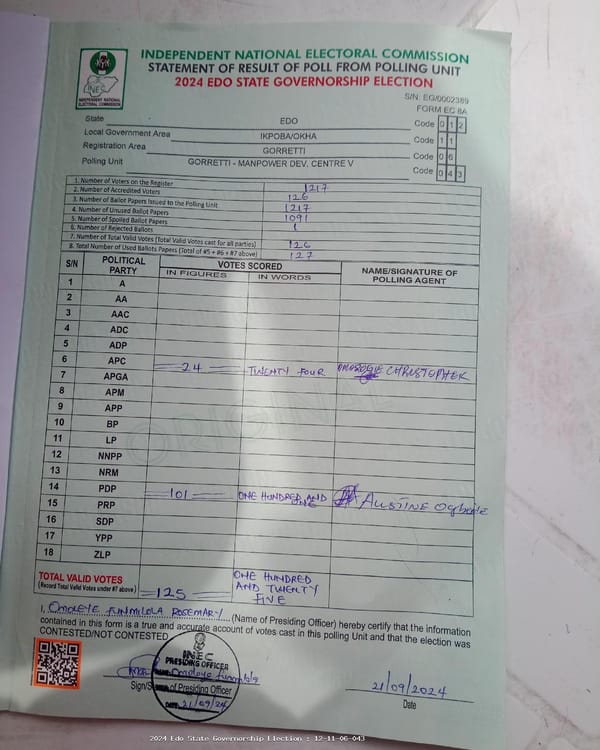 INDEPENDENT NATIONAL ELECTORAL COMMISSION
STATEMENT OF RESULT OF POLL FROM POLLING UNIT
2024 EDO STATE GOVERNORSHIP ELECTION
INEC
INDEPENDENT NATIONAL ELECTORAL COMMISSION
S/N: EG/0002389
FORM EC 8A
State EDO Code 0 1 2
Local Government Area IKPOBA/OKHA Code 1 1
Registration Area GORRETTI Code 0 6
Polling Unit GORRETTI - MANPOWER DEV. CENTRE V Code 0 4 3
1. Number of Voters on the Register 1217
2. Number of Accredited Voters 126
3. Number of Ballot Papers Issued to the Polling Unit 1217
4. Number of Unused Ballot Papers 1091
5. Number of Spoiled Ballot Papers 1
6. Number of Rejected Ballots
7. Number of Total Valid Votes (Total Valid Votes cast for all parties) 126
8. Total Number of Used Ballots Papers (Total of #5 + #6 + #7 above) 127
S/N POLITICAL PARTY VOTES SCORED NAME/SIGNATURE OF POLLING AGENT
IN FIGURES IN WORDS
1 A
2 AA
3 AAC
4 ADC
5 ADP
6 APC 24 TWENTY FOUR CHRISTOPHER
7 APGA
8 APM
9 APP
10 BP
11 LP
12 NNPP
13 NRM
14 PDP 101 ONE HUNDRED AND ONE AUSTINE Ogbeide
15 PRP
16 SDP
17 YPP
18 ZLP
TOTAL VALID VOTES
(Record Total Valid Votes under #7 above) =125 ONE HUNDRED AND TWENTY FIVE
I, OMOLEYE FUNMILOLA ROSEMARY (Name of Presiding Officer) hereby certify that the information
contained in this form is a true and accurate account of votes cast in this polling Unit and that the election was
CONTESTED/NOT CONTESTED
INEC
PRESIDING OFFICER
NAME: Omoleye funmilola
DATE: 21/09/24
Sign/S of Presiding Officer
21/09/2024
Date
2024 Edo State Governorship Election : 12-11-06-043